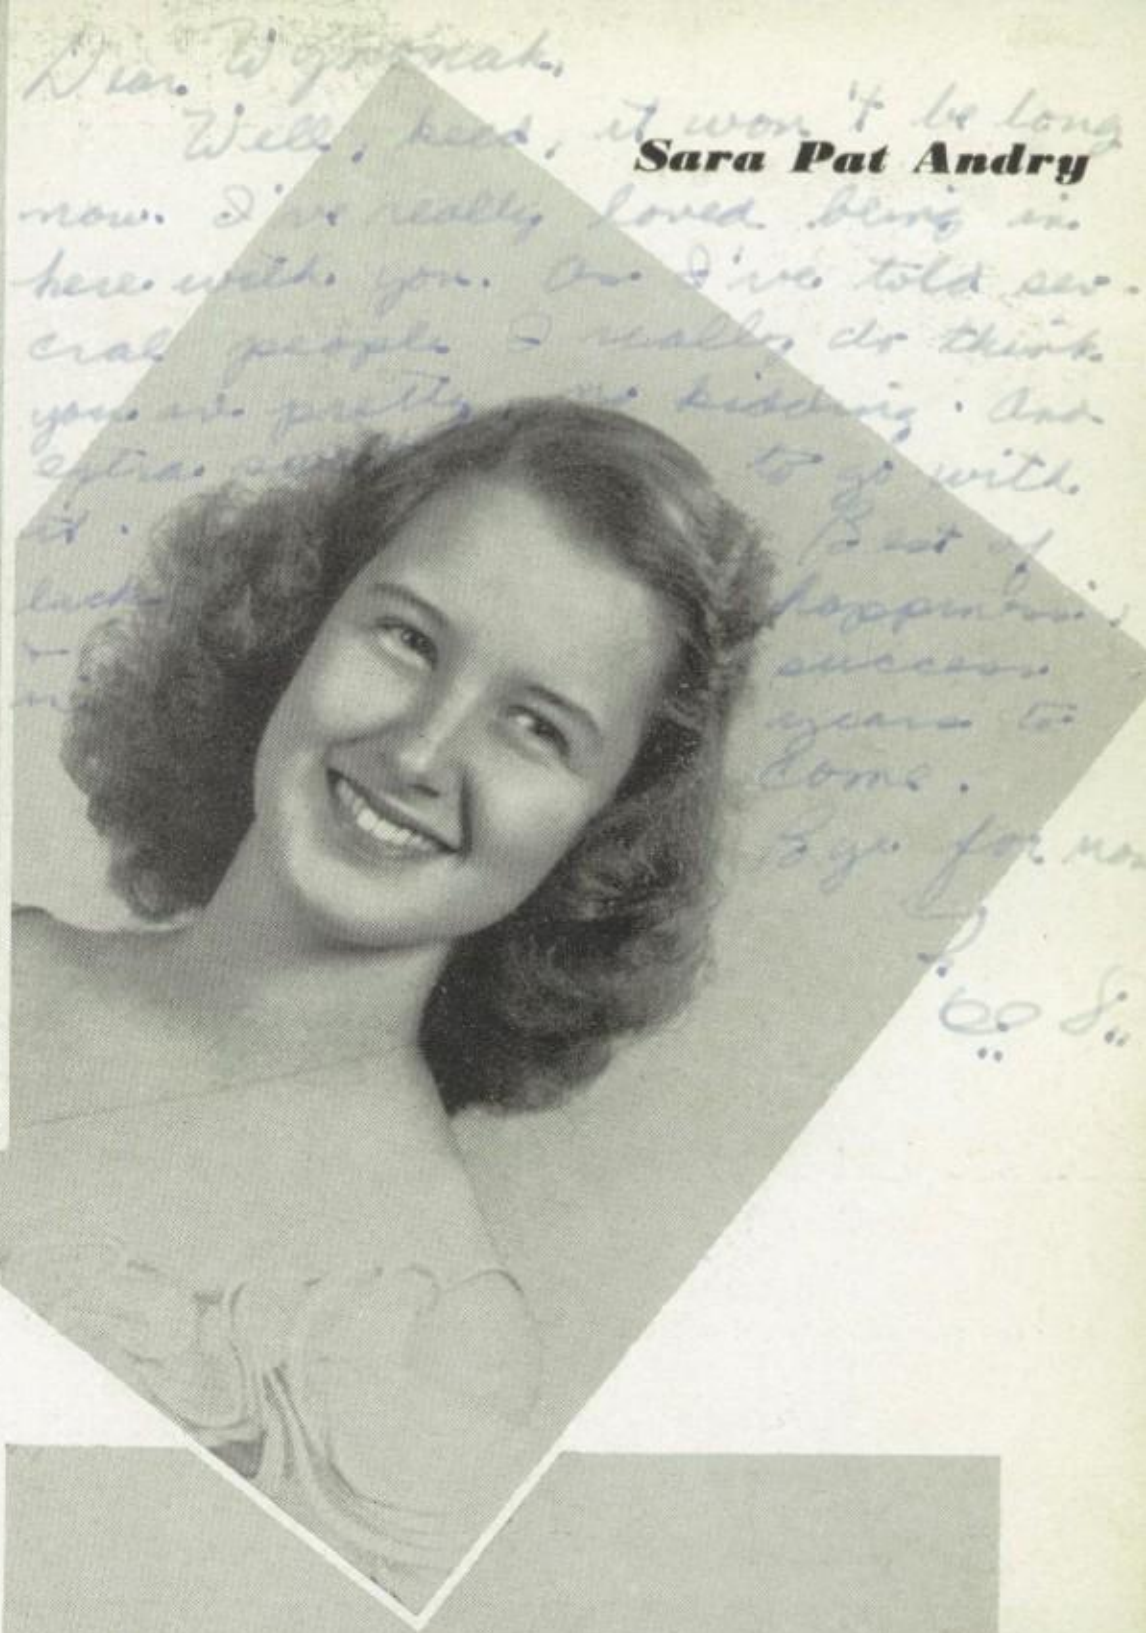 Dear Wynonah,
Well, keed, it won't be long
Sara Pat Andry
now. I've really loved being in
here with you. As I've told sev-
eral people I really do think
you're pretty, no kidding. And
extra to go with
it. Best of
luck happiness,
+ success
years to
come.
Bye for now